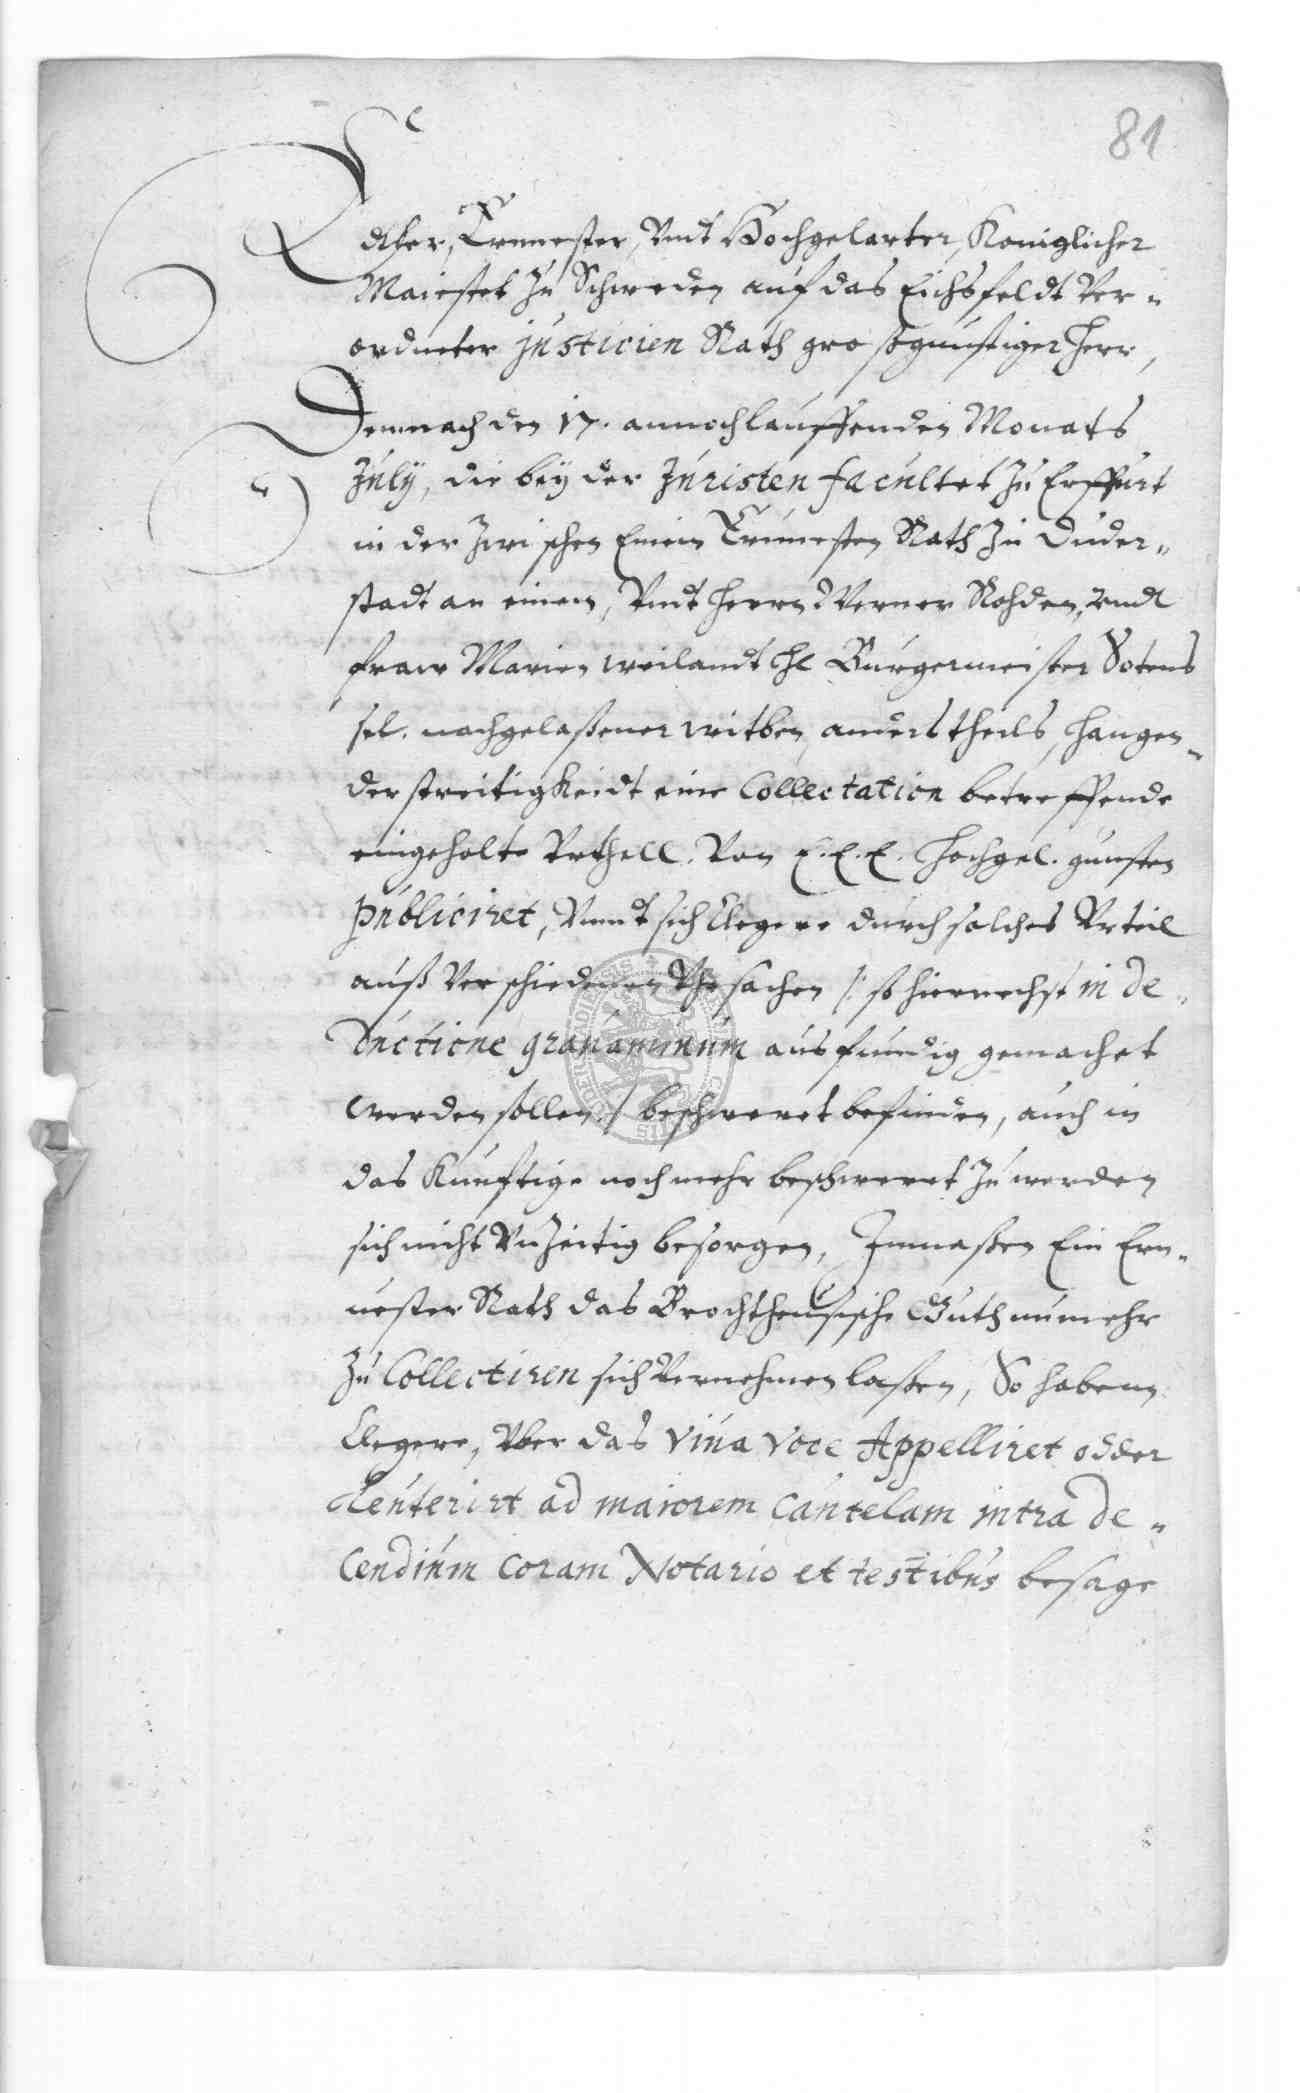 81
Edler, Ernvester, Vndt Hochgelarter, Koniglicher
Maiestet Zu Schweden auf das Eichsfeldt Ver-
ordneter justicien Rath grosgunstiger Herr,
Demnach den 17. annoch lauffenden Monats
July, die beÿ der Juristen facultet Zu Erffurt
in der Zwischen Einem Ernuesten Rath Zu Duder-
stadt an einem, Vndt Herrn Werner Rohden, vndt
fraw Marien weilandt Hl Burgermeister Sotens
sel. nachgelaßener witben, anders theils, hangen-
der streitigkeidt eine Collectation betreffende
eingeholte Vrthell. Von E. E. E. Hochgel. gunsten
publiciret, Vnndt sich Clegere durch solches Vrteil
auß Verschiedenen Vhrsachen /: so hiernechst in de-
ductione grauaminum ausfundig gemachet
werden sollen :/ beschweret befinden, auch in
das Kunftige noch mehr beschweret Zu werden
sich nicht Vnzeitig besorgen, Inmaßen Ein Ern-
uester Rath das Brochthausische Guth nunmehr
Zu Collectiren sich Vernehmen laßen, So habenn
Clegere, Vber das viua voce Appelliret odder
leuterirt ad maiorem Cautelam intra de-
Cendium Coram Notario et testibus besage